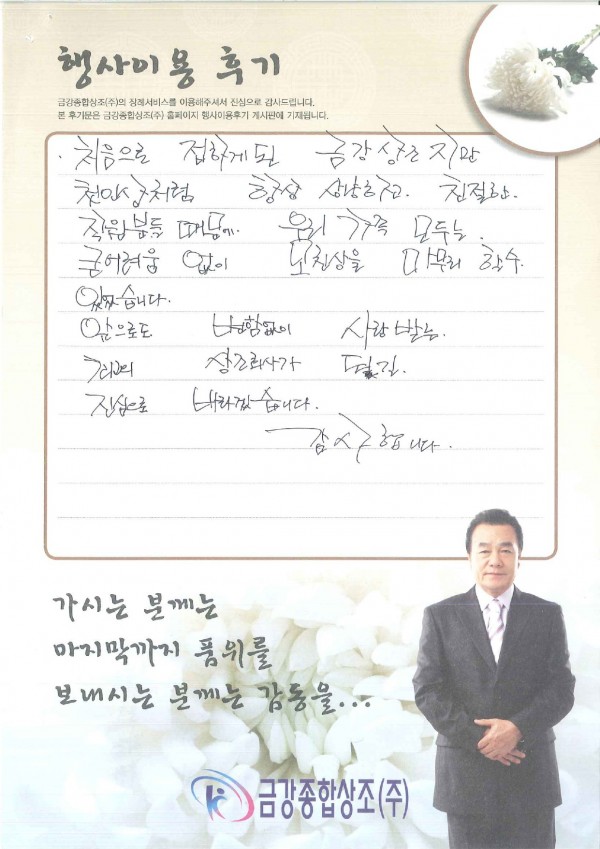 행사이용 후기
금강종합상조(주)의 장례서비스를 이용해주셔서 진심으로 감사드립니다.
본 후기문은 금강종합상조(주) 홈페이지 행사이용후기 게시판에 기재됩니다.
처음으로 접하게된 금강 상조 지만
천안상처럼 항상 상냥하고. 친절한.
직원분들 때문에. 우리 가족 모두는.
큰어려움 없이 모친상을 마무리 할수.
있었습니다.
앞으로도 변함없이 사랑 받는.
최고의 상조회사가 되길.
진심으로 바라겠습니다.
감사합니다.
가시는 분께는
마지막까지 품위를
보내시는 분께는 감동을...
금강종합상조(주)